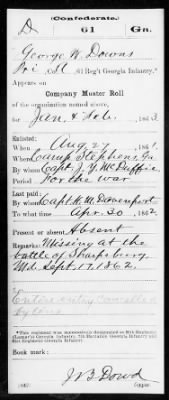 (Confederate.)
D 61 Ga.
George W. Downs
Pri , Co. , 61 Reg't Georgia Infantry.*
Appears on
Company Muster Roll
of the organization named above,
for Jan. & Feb. , 1863.
Enlisted:
When Aug. 27 , 1861.
Where Camp Stephens, Ga
By whom Capt. J. Y. McDuffie
Period For the war
Last paid:
By whom Capt. K. M. Davenport
To what time Apr. 30 , 1862.
Present or absent Absent
Remarks: Missing at the
battle of Sharpsburg
Md. Sept. 17, 1862.
Entire entry cancelled
by line
Book mark:
J. B. Dowd
(642) Copyist.